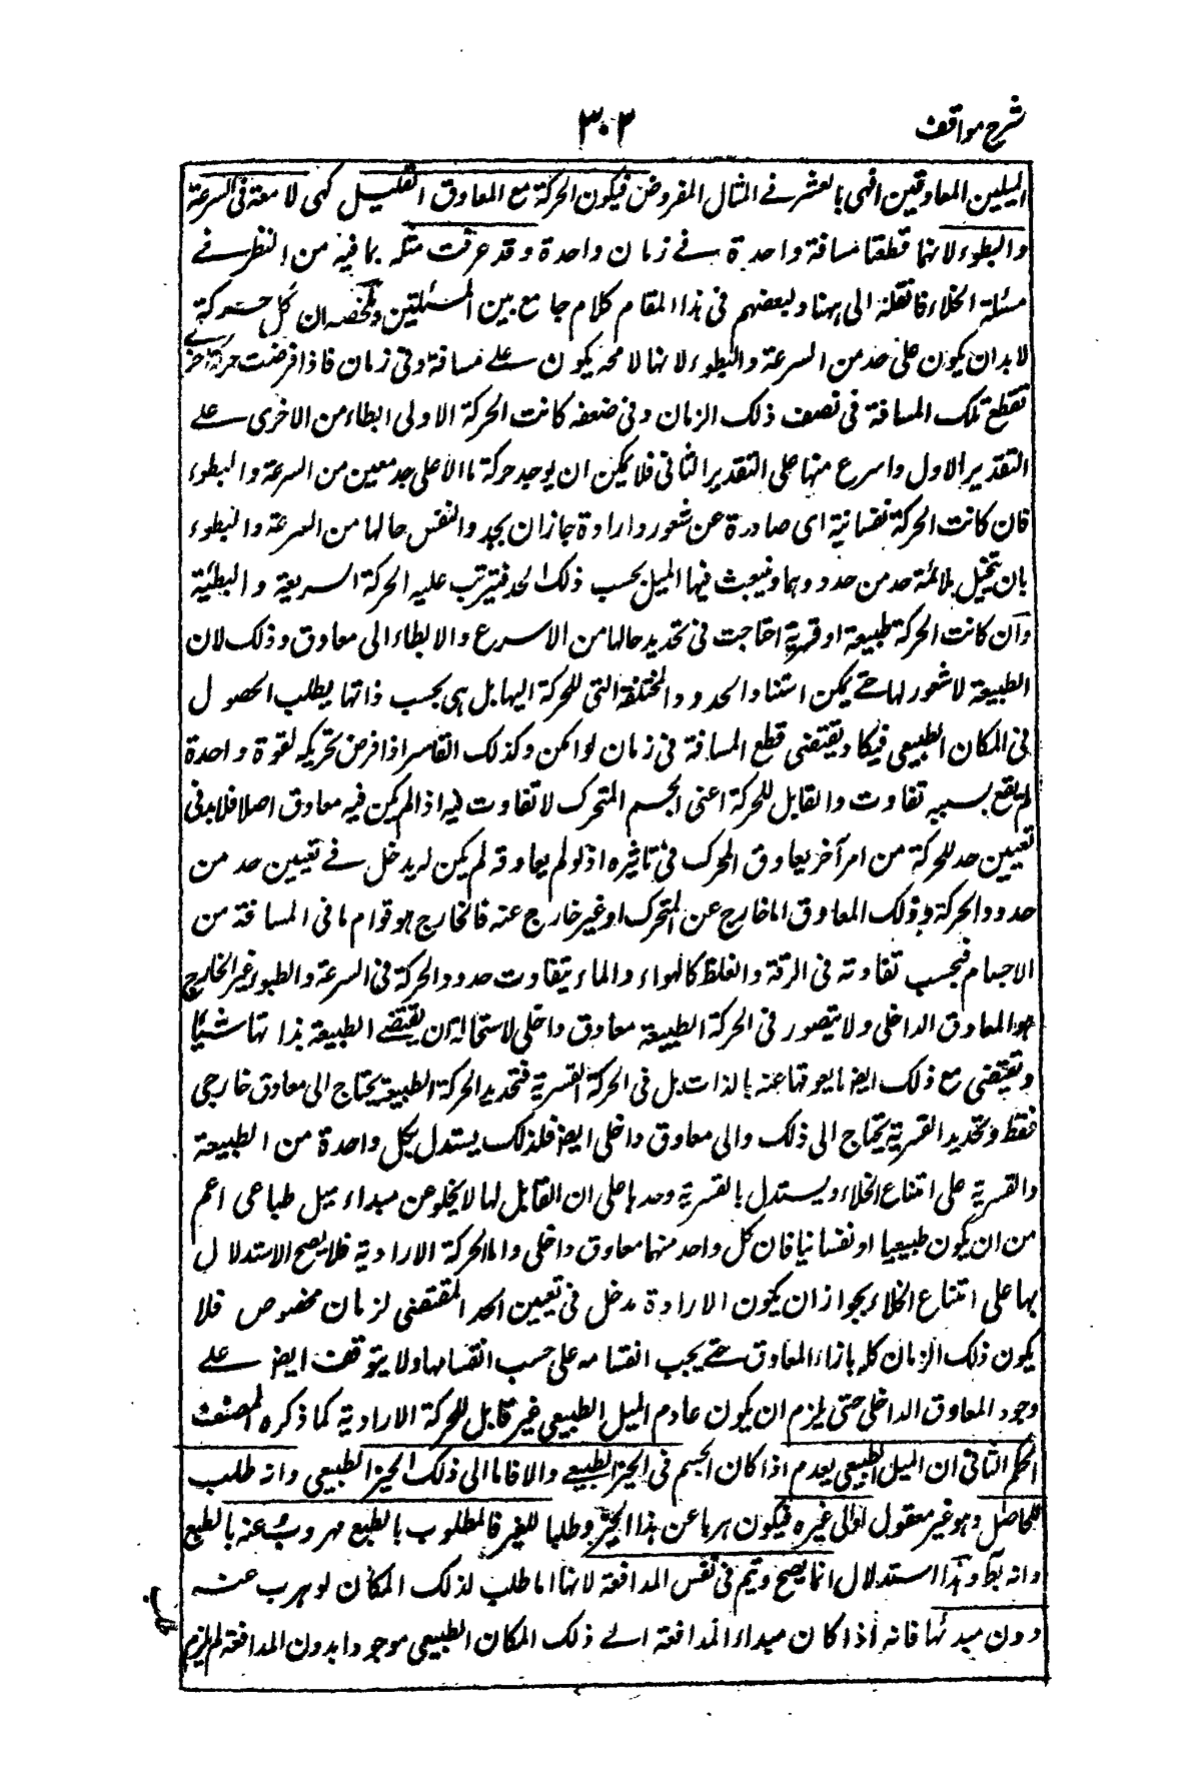 شرح مواقف
٣٠٢
الميلين المعاوقين افهى بالعشر فے المثال المفروض فيكون الحركة مع المعاوق القليل كهى لا معة فى السرعة
والبطوء لانهما قطعتا مسافة واحدة فے زمان واحدة وقد عرفت مثله بما فيه من النظر فے
مسئلة الخلاء فانقله الى ههنا ولبعضهم فى هذا المقام كلام جامع بين المسئلتين وملخصه ان كل حركة
لا بد ان يكون على حد من السرعة والبطوء لانها لا محة يكون علے مسافة وفى زمان فاذا فرضت حركة اخرے
تقطع تلك المسافة فى نصف ذلك الزمان وفى ضعفه كانت الحركة الاولى ابطاء من الاخرى علے
التقدير الاول واسرع منها على التقدير الثانى فلا يمكن ان يوجد حركة ما الا على حد معين من السرعة والبطوء
فان كانت الحركة نفسانية اى صادرة عن شعور وارادة جاز ان يحدد النفس حالها من السرعة والبطوء
بان يتخيل ملائمة حد من حدودهما وينبعث فيها الميل بحسب ذلك الحد فيترتب عليه الحركة السريعة والبطيئة
وان كانت الحركة طبيعة او قسرية احتاجت فى تحديد حالها من الاسرع والابطاء الى معاوق وذلك لان
الطبيعة لا شعور لها حتے يمكن استناد الحدود المختلفة التى للحركة اليها بل هى بحسب ذاتها يطلب الحصول
فى المكان الطبيعى فيكاد يقتضى قطع المسافة فى زمان لو امكن وكذلك القاسر اذا فرض تحريكه لقوة واحدة
لم يقع بسببه تفاوت والقابل للحركة اعنى الجسم المتحرك لا تفاوت فيه اذا لم يكن فيه معاوق اصلا فلا بد فى
تعيين حد للحركة من امر آخر يعاوق المحرك فى تاثيره اذ لو لم يعاوقه لم يكن له يدخل فے تعيين حد من
حدود الحركة وذلك المعاوق اما خارج عن المتحرك او غير خارج عنه فالخارج هو قوام ما فى المسافة من
الاجسام فبحسب تفاوته فى الرقة والغلظ كالهواء والماء يتفاوت حدود الحركة فى السرعة والطبوء وغير الخارج
هو المعاوق الداخلى ولا يتصور فى الحركة الطبيعية معاوق داخلى لاستحالة ان يقتضے الطبيعة بذاتها شيئا
وتقتضى مع ذلك ايضا ما يعوقها عنه بالذات بل فى الحركة القسرية فتحديد الحركة الطبيعية يحتاج الى معاوق خارجى
فقط وتحديد القسرية يحتاج الى ذلك والى معاوق داخلى ايض فلذلك يستدل بكل واحدة من الطبيعة
والقسرية على امتناع الخلاء ويستدل بالقسرية وحدها على ان القابل لها لا يخلو عن مبداء ميل طباعى اعم
من ان يكون طبيعيا او نفسانيا فان كل واحد منهما معاوق داخلى واما الحركة الارادية فلا يصح الاستدلال
بها على امتناع الخلاء بجواز ان يكون الارادة مدخل فى تعيين الحد المقتضى لزمان مخصوص فلا
يكون ذلك الزمان كله بازاء المعاوق حتے يجب انقسامه على حسب انقسامها ولا يتوقف ايض علے
وجود المعاوق الداخلى حتى يلزم ان يكون عادم الميل الطبيعى غير قابل للحركة الارادية كما ذكره المصنف
الحكم الثانى ان الميل الطبيعى يعدم اذا كان الجسم فى الحيز الطبيعے والا فاما الى ذلك الحيز الطبيعى وانه طلب
للحاصل وهو غير معقول او الى غيره فيكون هربا عن هذا الحيز وطلبا للغير فالمطلوب بالطبع مهروب عنه بالطبع
وانه بط وهذا استدلال انما يصح ويتم فى نفس المدافعة لانها اما طلب لذلك المكان او هرب عنه
دون مبدئها فانه اذا كان مبداء المدافعة الے ذلك المكان الطبيعى موجودا بدون المدافعة لم يلزم